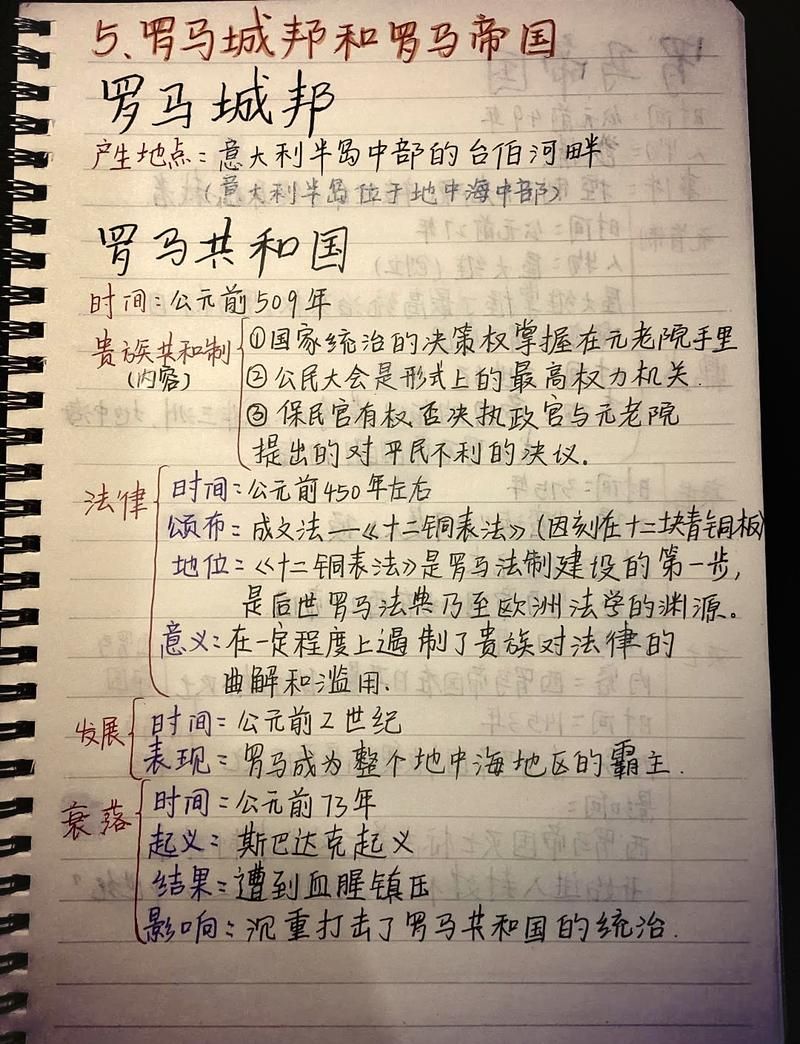 5、罗马城邦和罗马帝国
罗马城邦
产生地点：意大利半岛中部的台伯河畔
（意大利半岛位于地中海中部）
罗马共和国
时间：公元前509年
贵族共和制
（内容）
①国家统治的决策权掌握在元老院手里
②公民大会是形式上的最高权力机关.
③保民官有权否决执政官与元老院
提出的对平民不利的决议.
法律
时间：公元前450年左右
颁布：成文法—《十二铜表法》（因刻在十二块青铜板）
地位：《十二铜表法》是罗马法制建设的第一步,
是后世罗马法典乃至欧洲法学的渊源。
意义：在一定程度上遏制了贵族对法律的
曲解和滥用.
发展
时间：公元前2世纪
表现：罗马成为整个地中海地区的霸主.
衰落
时间：公元前73年
起义：斯巴达克起义
结果：遭到血腥镇压
影响：沉重打击了罗马共和国的统治.